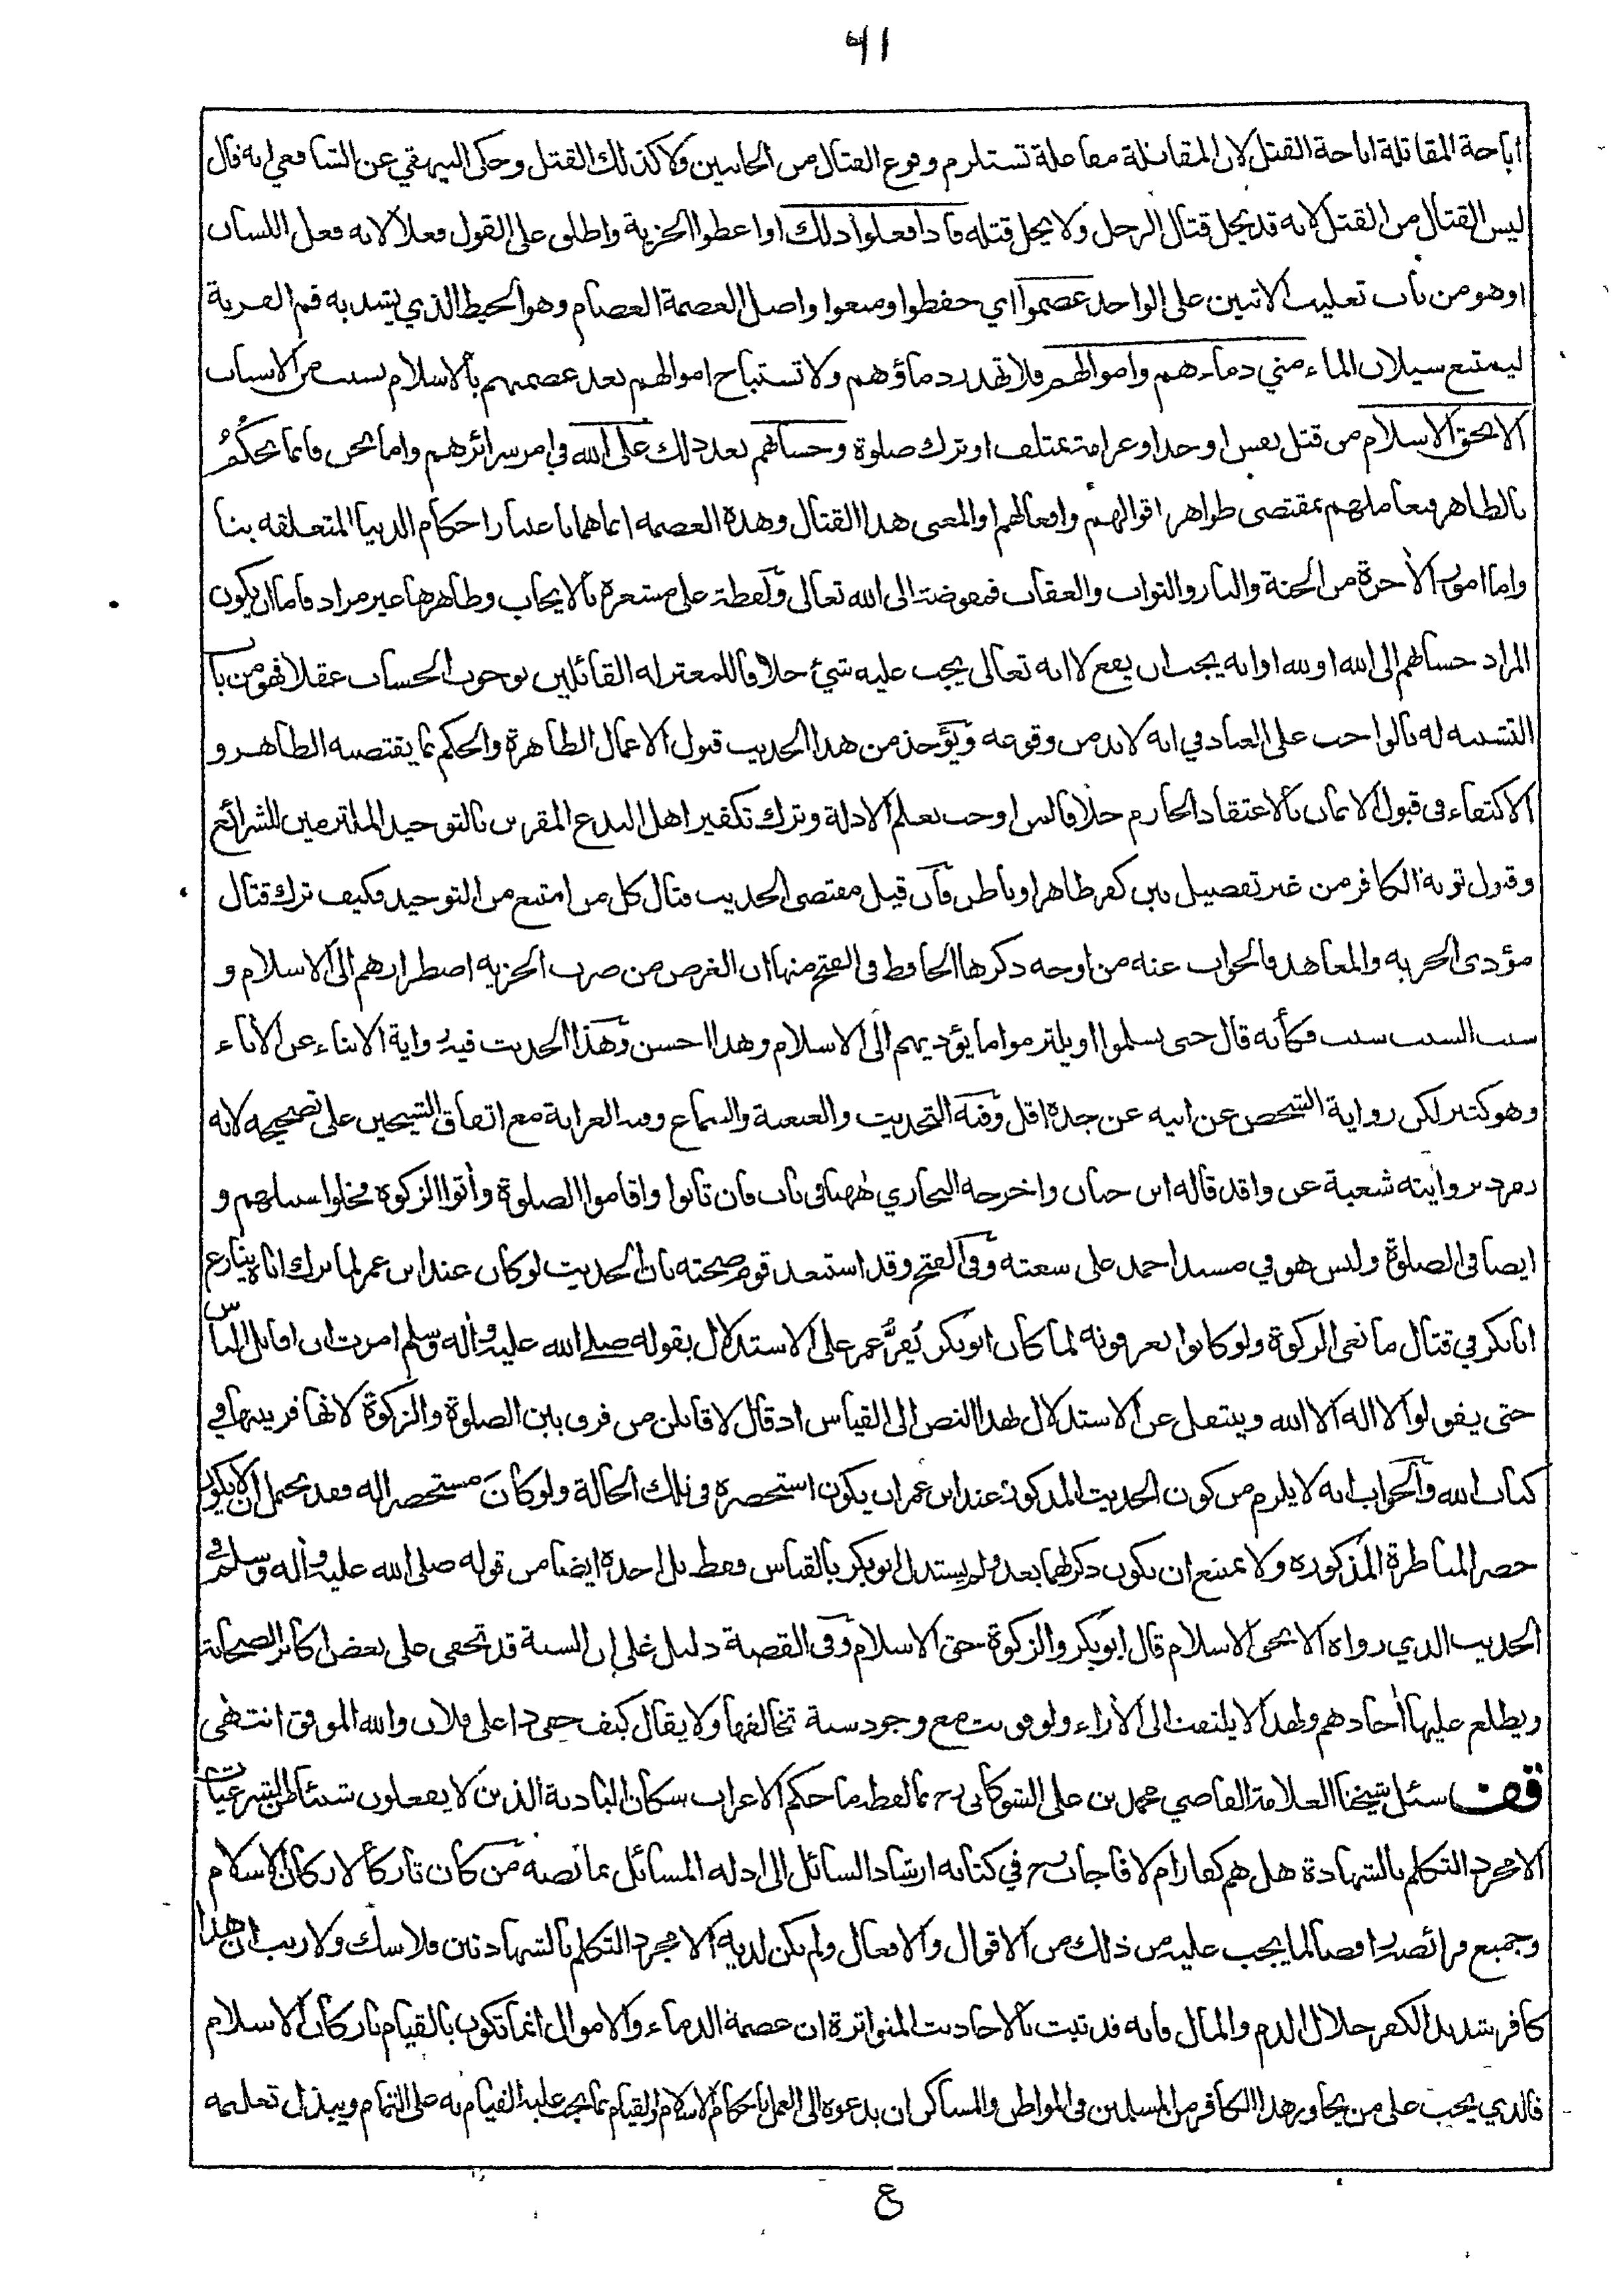 ٤١
اباحة المقاتلة اباحة القتل لان المقاتلة مفاعلة تستلزم وقوع القتال من الجانبين ولا كذلك القتل وحكى البيهقي عن الشافعي انه قال
ليس القتال من القتل لانه قد يحل قتال الرجل ولا يحل قتله فاذا فعلوا ذلك او اعطوا الجزية واطلق على القول فعلا لانه فعل اللسان
او هو من باب تغليب الاثنين على الواحد عصموا اي حفظوا ومنعوا واصل العصمة العصام وهو الخيط الذي يشد به فم القربة
ليمتنع سيلان الماء مني دماءهم واموالهم فلا تهدر دماؤهم ولا تستباح اموالهم بعد عصمتهم بالاسلام بسبب من الاسباب
الا بحق الاسلام من قتل نفس او حد او غرامة بمتلف او ترك صلوة وحسابهم بعد ذلك على الله في امر سرائرهم واما نحن فانما نحكم
بالظاهر فنعاملهم بمقتضى ظواهر اقوالهم وافعالهم او المعنى هذا القتال وهذه العصمه انما هما باعتبار احكام الدنيا المتعلقه بنا
واما امور الأخرة من الجنة والنار والثواب والعقاب فمفوضة الى الله تعالى ولفظة على مشعرة بالايجاب وظاهرها غير مراد فاما ان يكون
المراد حسابهم الى الله او لله او انه يجب ان يقع لا انه تعالى يجب عليه شئ خلافا للمعتزله القائلين بوجوب الحساب عقلا فهو من باب
التشبيه له بالواجب على العباد في انه لا بد من وقوعه ويؤخذ من هذا الحديث قبول الاعمال الظاهرة والحكم بما يقتضيه الظاهر و
الاكتفاء فى قبول الايمان بالاعتقاد الجازم خلافا لمن اوجب تعلم الادلة وترك تكفير اهل البدع المقرين بالتوحيد الملتزمين للشرائع
وقبول توبة الكافر من غير تفصيل بين كفر ظاهر او باطن فان قيل مقتضى الحديث قتال كل من امتنع من التوحيد فكيف ترك قتال
مؤدى الجزيه والمعاهد فالجواب عنه من اوجه ذكرها الحافظ فى الفتح منها ان الغرض من ضرب الجزيه اضطرارهم الى الاسلام و
سبب السبب سبب فكأنه قال حتى يسلموا او يلتزموا ما يؤديهم الى الاسلام وهذا احسن وهذا الحديث فيه رواية الابناء عن الأباء
وهو كثير لكن رواية الشخص عن ابيه عن جده اقل وفيه التحديث والعنعنة والسماع وفيه الغرابة مع اتفاق الشيخين على تصحيحه لانه
تفرد بروايته شعبة عن واقد قاله ابن حبان واخرجه البخاري ههنا فى باب فان تابوا واقاموا الصلوة وأتوا الزكوة فخلوا سبيلهم و
ايضا فى الصلوة وليس هو في مسند احمد على سعته وفى الفتح وقد استبعد قوم صحته بان الحديث لو كان عند ابن عمر لما ترك اباه ينازع
ابا بكر في قتال مانعى الزكوة ولو كانوا يعرفونه لما كان ابو بكر يُقِرُّ عمر على الاستدلال بقوله صلى الله عليه وأله وسلم امرت ان اقاتل الناس
حتى يقولوا لا اله الا الله وينتقل عن الاستدلال بهذا النص الى القياس اذ قال لاقاتلن من فرق بين الصلوة والزكوة لانها قرينتها في
كتاب الله والجواب انه لا يلزم من كون الحديث المذكور عند ابن عمر ان يكون استحضره فى تلك الحالة ولو كان مستحضرا له فقد يحتمل ان لا يكون
حضر المناظرة المذكوره ولا يمتنع ان يكون ذكر لهما بعد ولم يستدل ابو بكر بالقياس فقط بل اخذه ايضا من قوله صلى الله عليه وأله وسلم في
الحديث الذي رواه الا بحق الاسلام قال ابو بكر والزكوة حق الاسلام وفى القصة دليل على ان السنة قد تخفى على بعض اكابر الصحابة
ويطلع عليها أحادهم ولهذا لا يلتفت الى الأراء ولو قويت مع وجود سنة تخالفها ولا يقال كيف خفى ذا على فلان والله الموفق انتهى
قف سئل شيخنا العلامة القاضي محمد بن على الشوكانى رح بما لفظه ما حكم الاعراب سكان البادية الذين لا يفعلون شيئا من الشرعيات
الا مجرد التكلم بالشهادة هل هم كفار ام لا فاجاب رح في كتابه ارشاد السائل الى ادله المسائل بما نصه من كان تاركا لاركان الاسلام
وجميع فرائضه رافضا لما يجب عليه من ذلك من الاقوال والافعال ولم يكن لديه الا مجرد التكلم بالشهادتين فلا شك ولا ريب ان هذا
كافر شديد الكفر حلال الدم والمال فانه قد ثبت بالاحاديث المتواترة ان عصمة الدماء والاموال انما تكون بالقيام باركان الاسلام
فالذي يجب على من يجاور هذا الكافر من المسلمين فى المواطن والمساكن ان يدعوه الى العمل باحكام الاسلام والقيام بما يجب عليه القيام به على التمام ويبذل تعليمه
ع